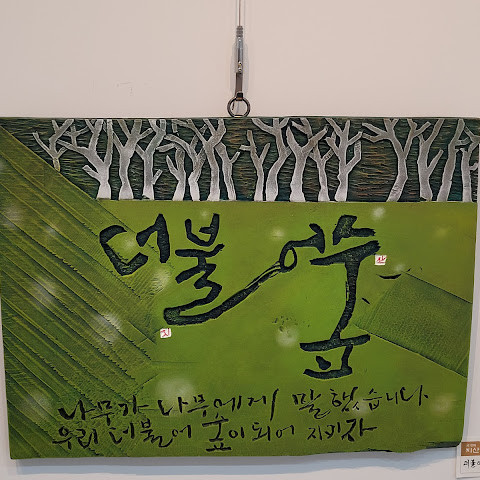 더불어숲
산
지
나무가 나무에게 말했습니다.
우리 더불어 숲이 되어 지키자
지산